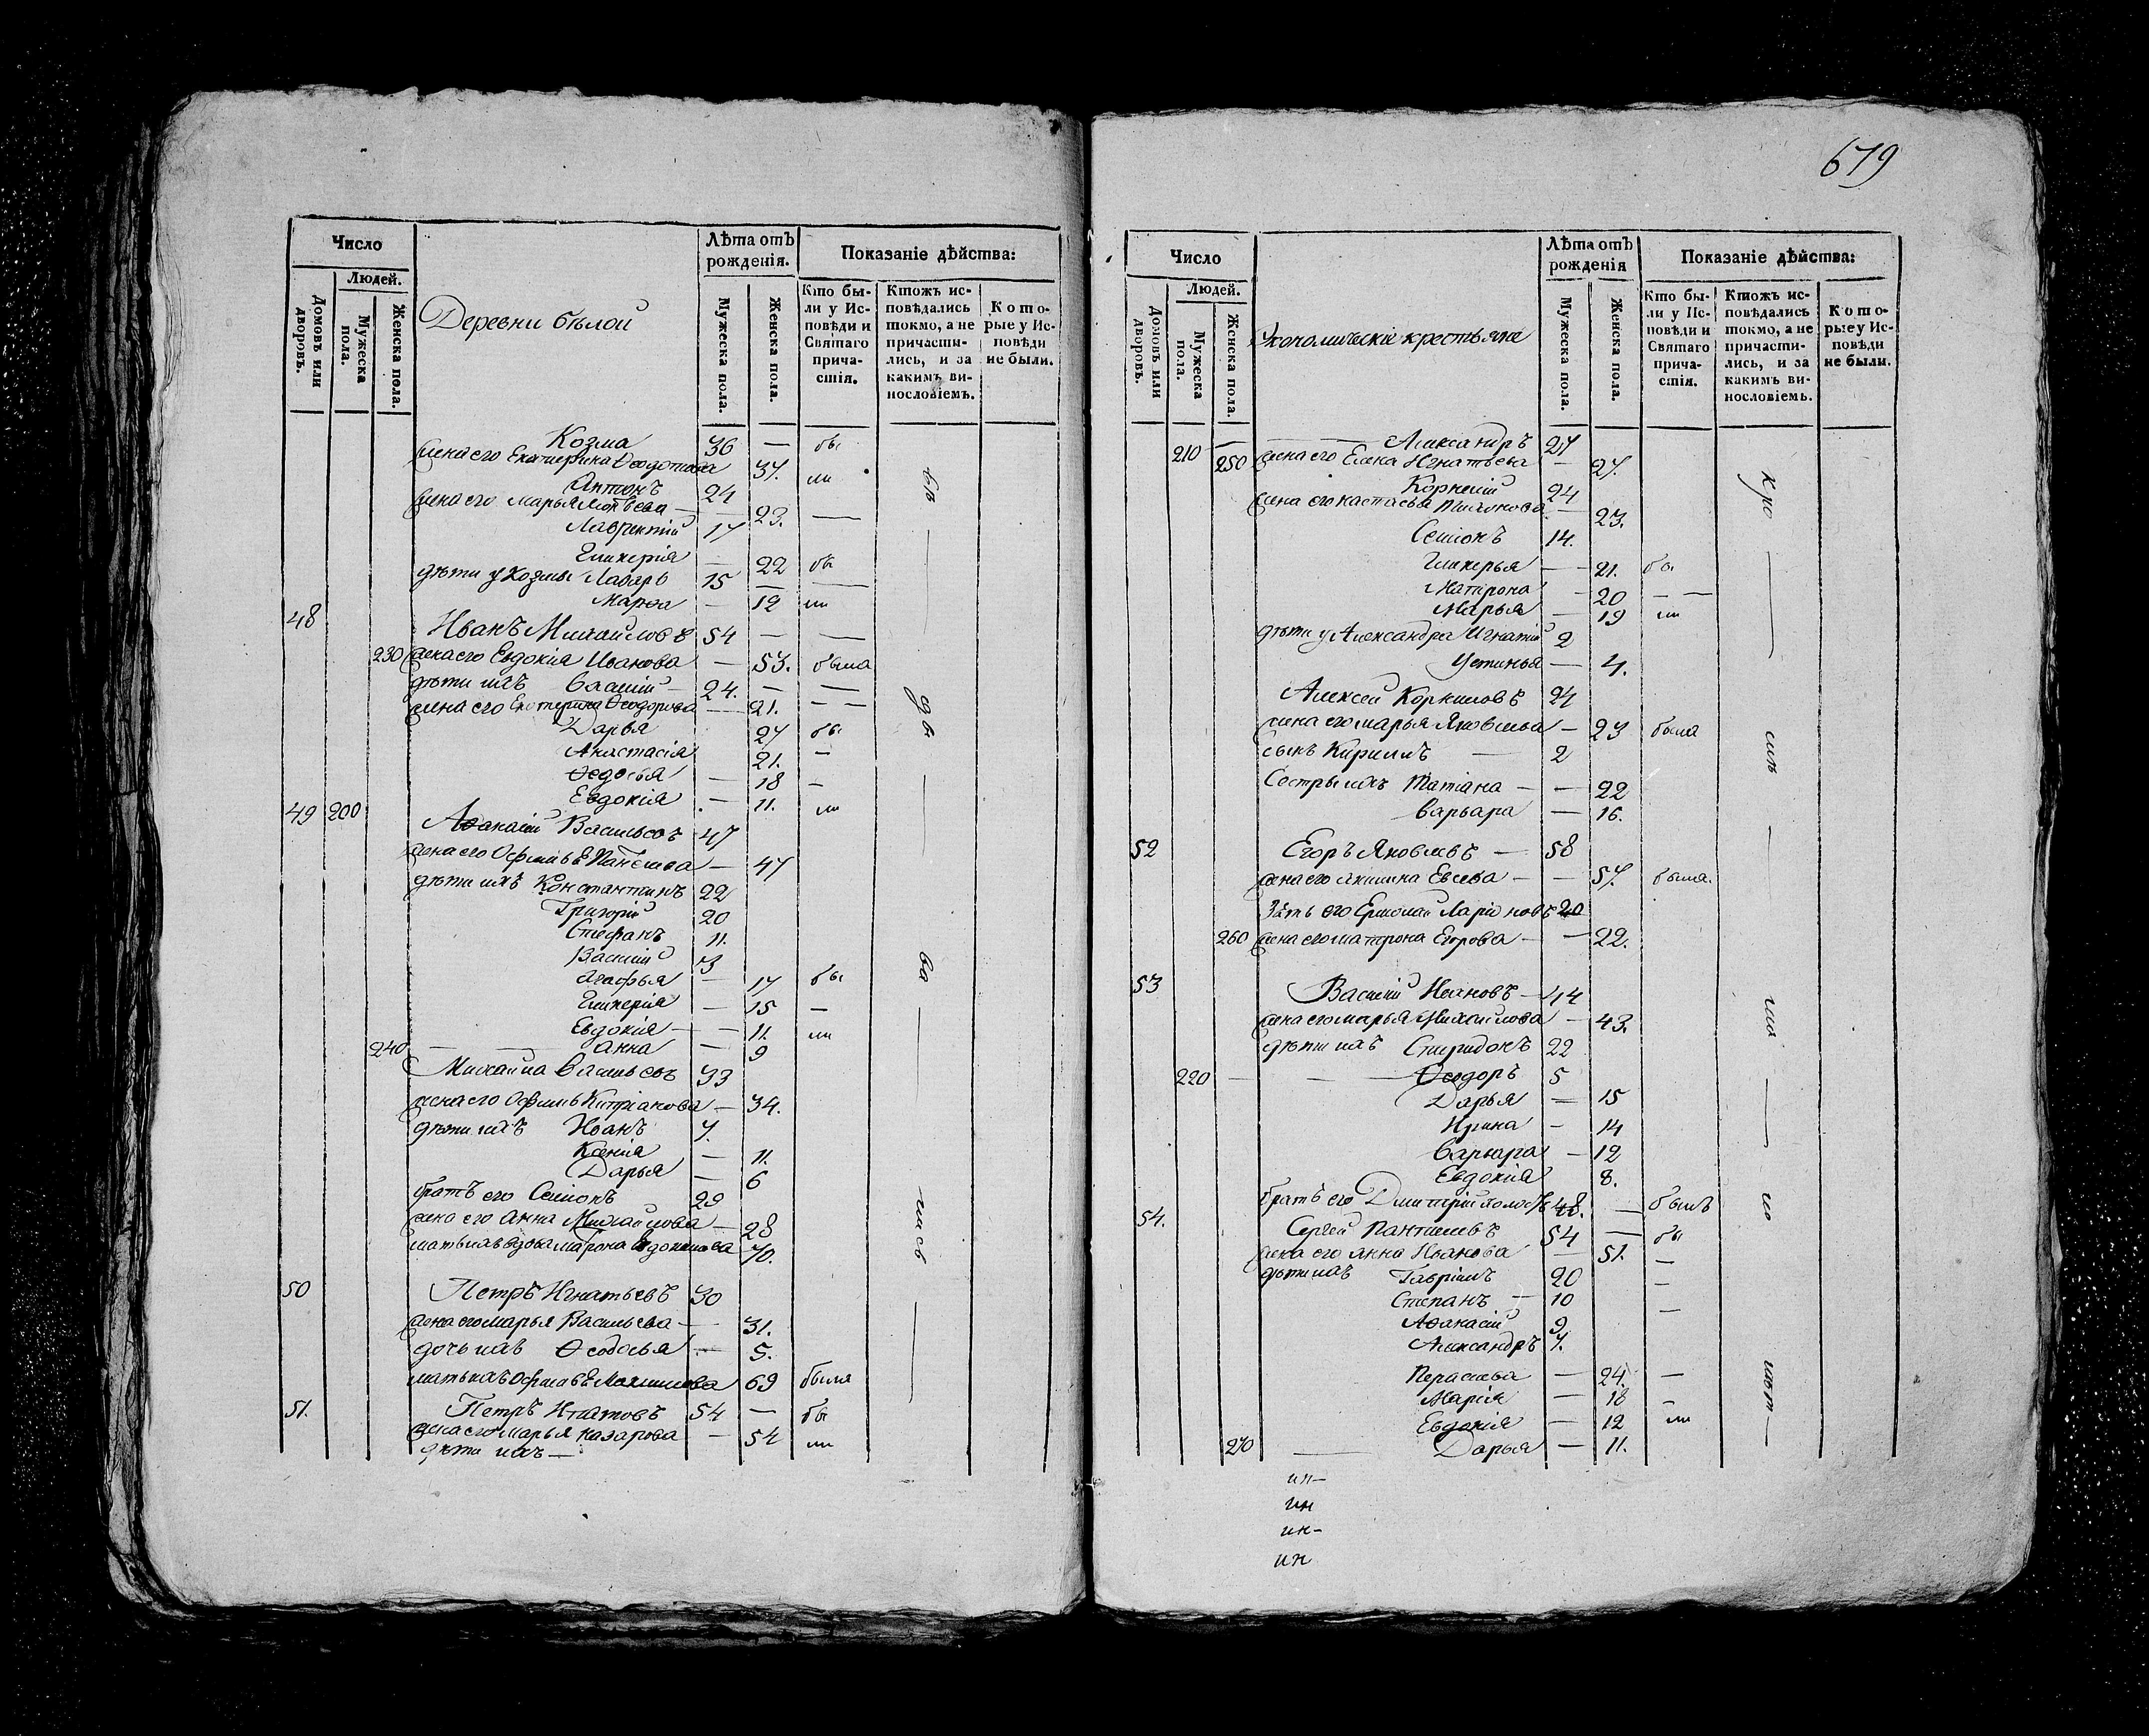 Число
Людей.
Домовъ или дворовъ.
Мужеска пола.
Женска пола.
Деревни бѣлой
Лѣта отъ рожденія.
Мужеска пола.
Женска пола.
Показаніе дѣйства:
Кто бы-
ли у Ис-
повѣди и
Святаго
прича-
стія.
Ктожъ ис-
повѣдались
токмо, а не
причасти-
лись, и за
какимъ ви-
нословіемъ.
Кото-
рые у Ис-
повѣди
не были.
Козма 36 — бы
жена его Екатерина Ѳеодотова 37. ли
Антонъ 24
жена его Марья — 23. —
Лаврентій 17
Гликерія — 22 бы
дѣти у Козмы Лазарь 15 — —
Марѳа — 12 ли
48 Иванъ Михайловъ 54 — —
230 жена его Евдокія Иванова — 53. была
дѣти ихъ Василій — 24. — —
жена его Екатерина Ѳеодорова — 21. — —
Дарья 27 бы
Анастасія 21. —
Ѳедосья — 18 —
Евдокія — 11. ли
49 200 Аѳанасій Васильевъ 47
жена его — 47
дѣти ихъ Константинъ 22
Григорій 20
Стефанъ 11.
Василій 3
Агафья — 17 бы
Гликерія — 15 —
Евдокія — — 11. ли
240 — — Анна — 9
Михаила Васильевъ 33
жена его Киприанова — 34.
дѣти ихъ Иванъ 7.
Ксенія — 11.
Дарья — 6
братъ его Семіонъ 29
жена его Анна Михайлова — 28
мать ихъ вдова 70.
50 Петръ Игнатьевъ 30
жена его Марья Васильева — — 31.
дочь ихъ Ѳеодосья — 5.
мать ихъ 69 была
51. Петръ 54 — бы
жена его Марья Назарова — 54 ли
дѣти ихъ —
679
Число
Людей.
Домовъ или дворовъ.
Мужеска пола.
Женска пола.
Экономическіе крестьяне
Лѣта отъ рожденія
Мужеска пола.
Женска пола.
Показаніе дѣйства:
Кто бы-
ли у Ис-
повѣди и
Святаго
прича-
стія.
Ктожъ ис-
повѣдались
токмо, а не
причасти-
лись, и за
какимъ ви-
нословіемъ.
Кото-
рые у Ис-
повѣди
не были.
210 — Александръ 27
250 жена его Елена Игнатьева — 27.
Корнелій 24
жена его Настасья — 23.
Семіонъ 14.
Гликерья — — 21. бы
Матрона — 20 — —
Марья — 19 ли
дѣти у Александра Игнатій 2
Устинья — 4.
Алексей 24
жена его Марья Яковлева — 23 была
сынъ Кирилъ — 2
Сестры ихъ Татіана — — 22
Варвара — 16.
52 Егоръ Яковлевъ — 58
жена его Акилина Евсева — — 57. была.
Зять его Ермолай Ларіоновъ 20
260 жена его Матрона Егорова — — 22.
53 Василій Ивановъ — 44
жена его Марья Михайлова — 43.
дѣти ихъ Спиридонъ 22
220 — — Ѳеодоръ 5
Дарья — 15
Ирина — 14
Варвара — 12
Евдокія 8.
братъ его Дмитрій холостъ 48. — былъ
54. Сергей 54 — бы
жена его Анна Иванова — 51. —
дѣти ихъ Гавріилъ 20 —
Степанъ — 10 —
Аѳанасій 9
Александръ 7.
— 24. —
Марія — 18 —
Евдокія — 12 ли
270 — Дарья — 11.
ин-
ин
ин-
ин